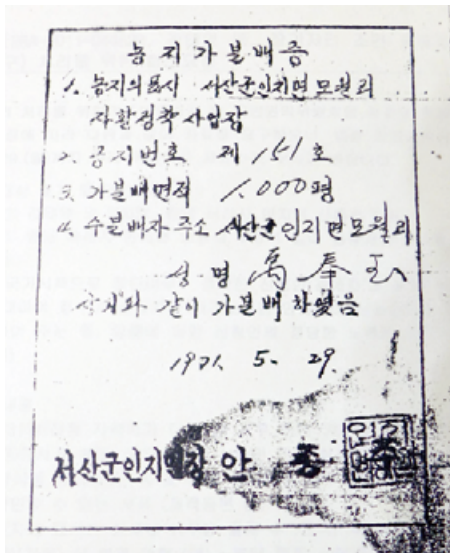 농지가분배증
1. 농지의표시 서산군인지면모월리
자활정착사업장
2. 공지번호 제 151호
3. 가분배면적 1,000평
4. 수분배자 주소 서산군인지면모월리
성명 萬奉
상기와 같이 가분배 하였음
1971. 5. 29.
서산군인지면장 안 종